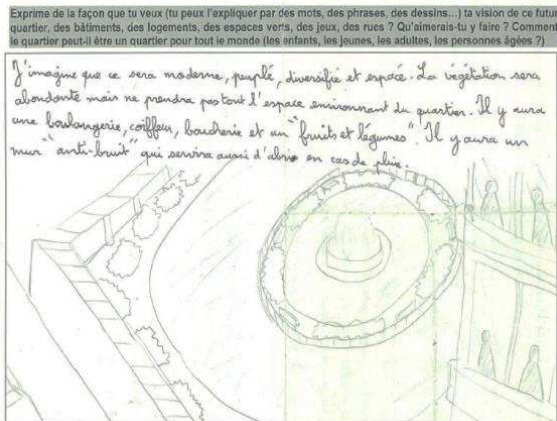 Exprime de la façon que tu veux (tu peux l'expliquer par des mots, des phrases, des dessins...) ta vision de ce futur
quartier, des bâtiments, des logements, des espaces verts, des jeux, des rues ? Qu'aimerais-tu y faire ? Comment
le quartier peut-il être un quartier pour tout le monde (les enfants, les jeunes, les adultes, les personnes âgées ?)
J'imagine que ce sera moderne, peuplé, diversifié et espacé. La végétation sera
abondante mais ne prendra pas tout l'espace environnant du quartier. Il y aura
une boulangerie, coiffeur, boucherie et un "fruits et légumes". Il y aura un
mur "anti-bruit" qui servira aussi d'abris en cas de pluie.